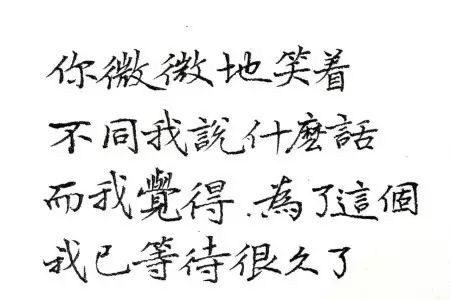 你微微地笑着
不同我說什麼話
而我覺得、為了這個
我已等待很久了